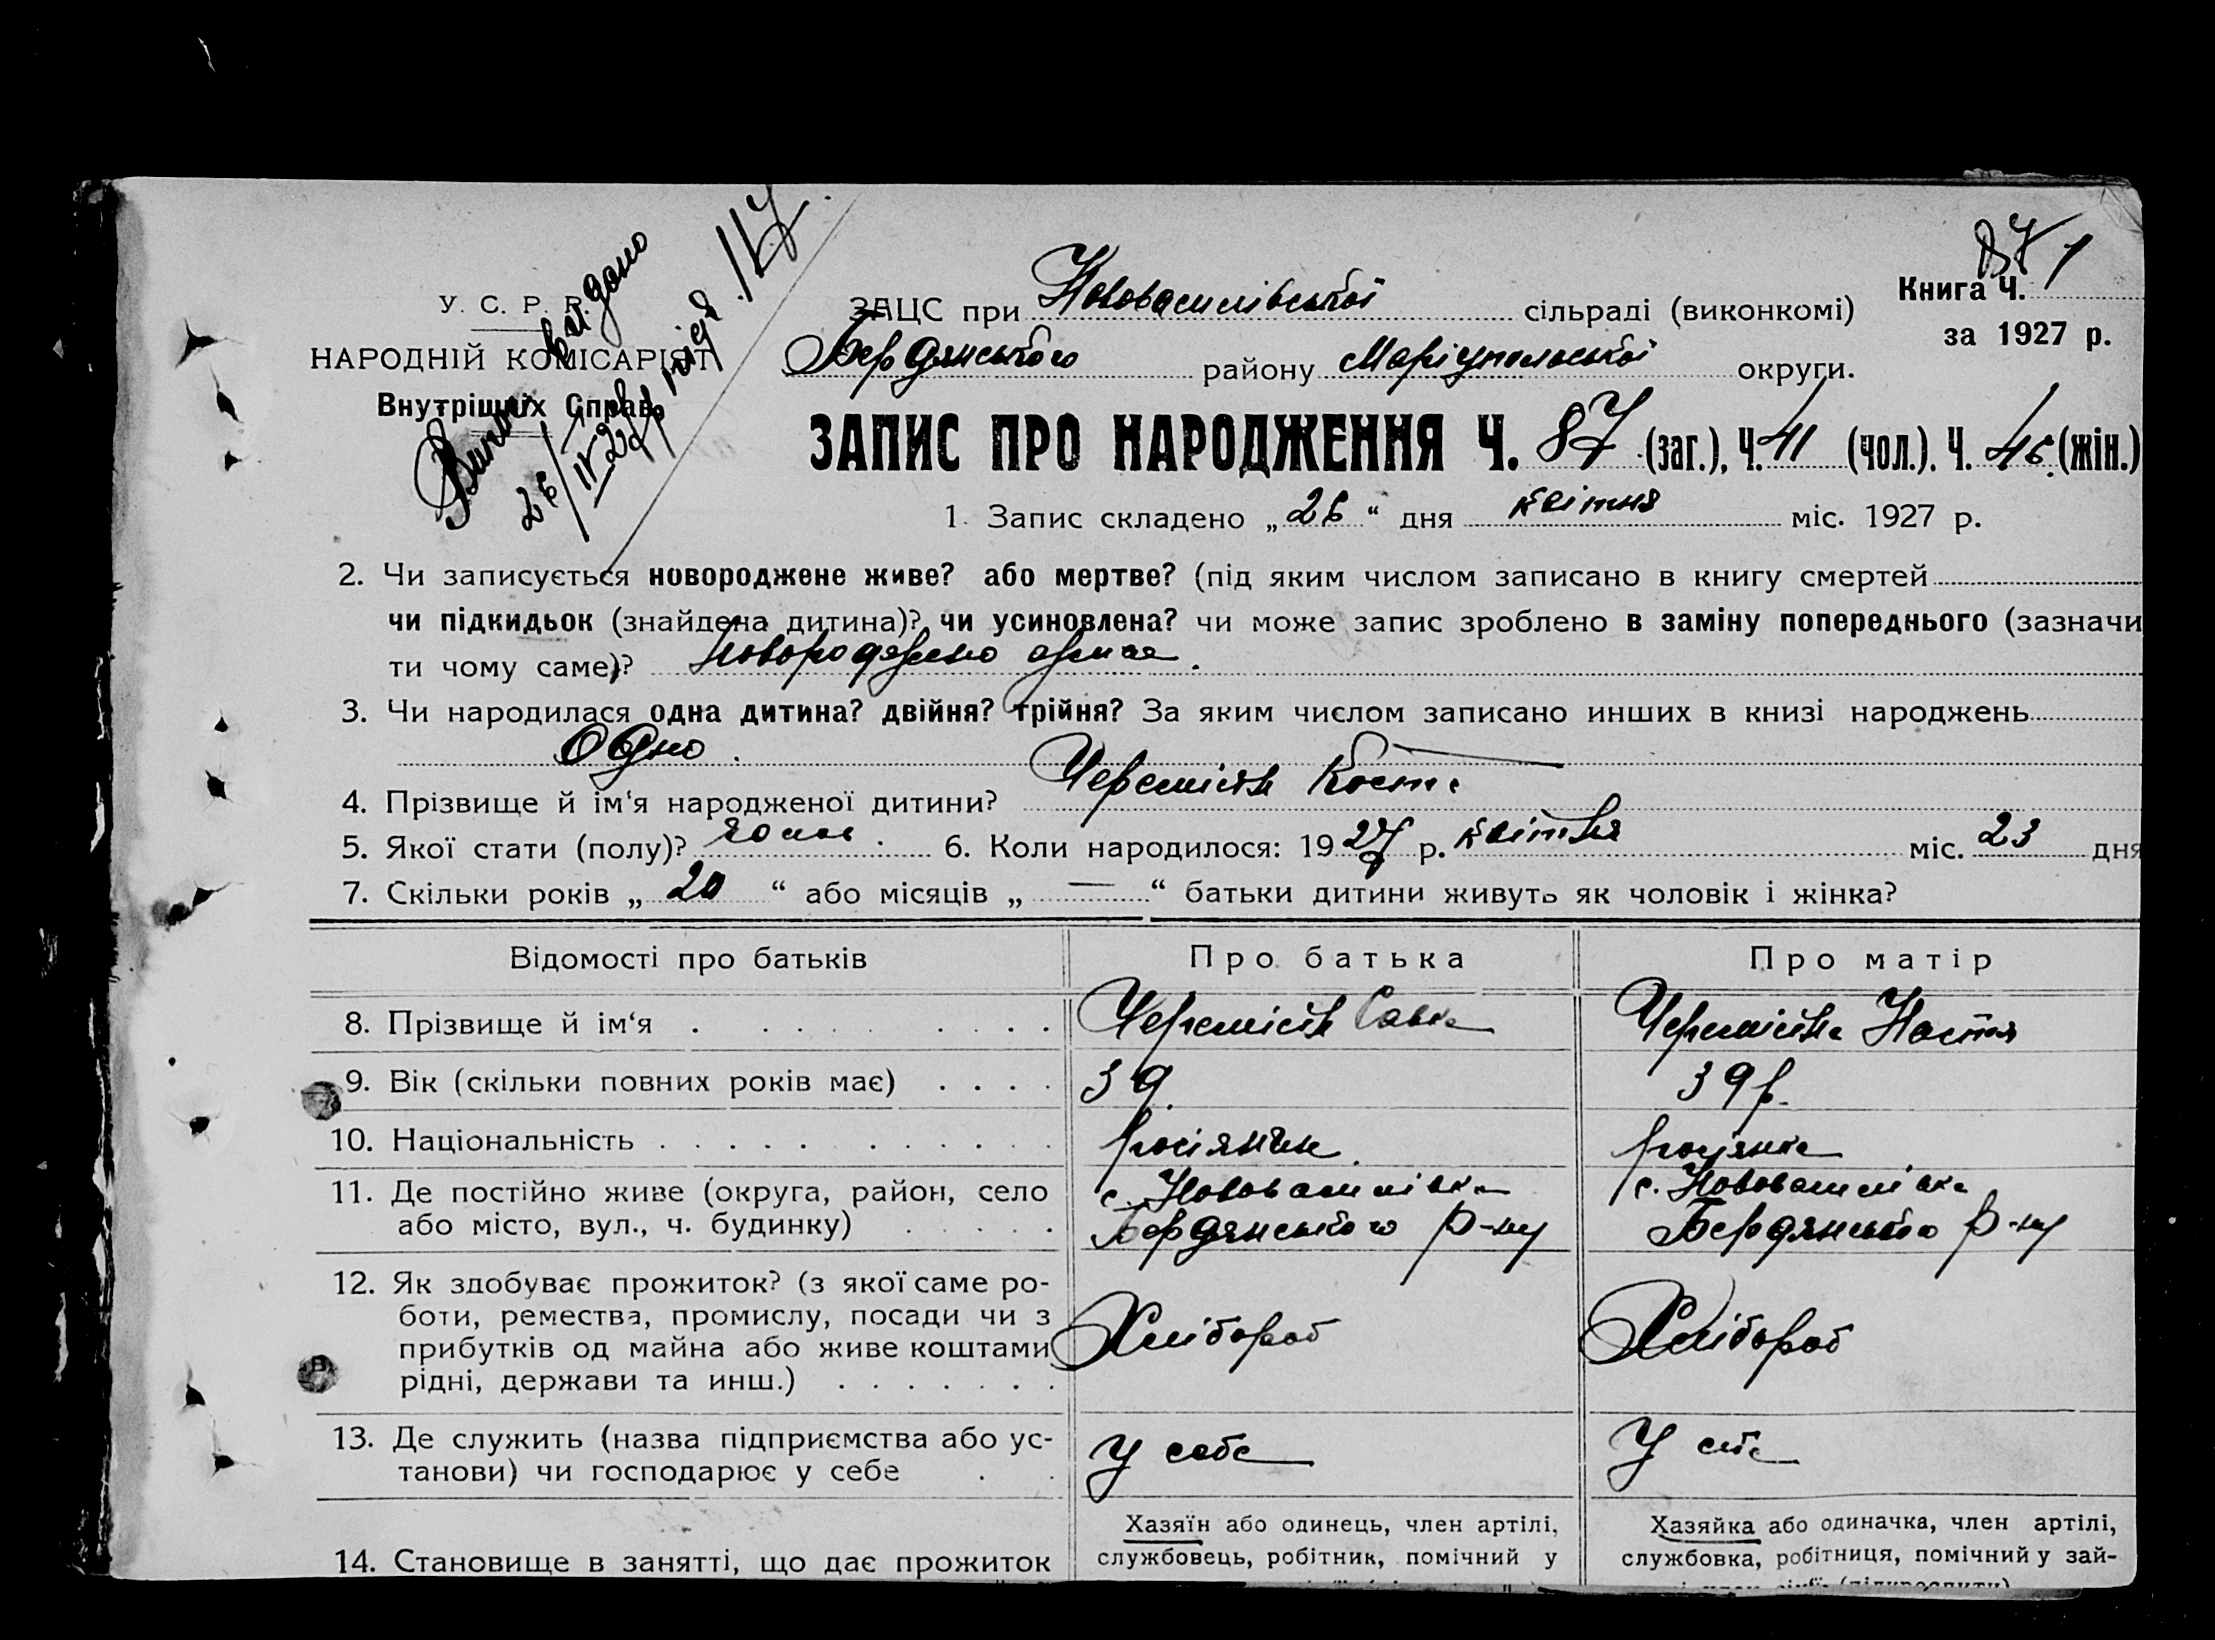 87 1
Випис видано
26/IV 27 р. під № 117.
У. С. Р. Р.
НАРОДНІЙ КОМІСАРІЯТ
Внутрішніх Справ
Книга Ч.
за 1927 р.
ЗАЦС при Нововасилівської сільраді (виконкомі)
Бердянського району Маріупольської округи.
ЗАПИС ПРО НАРОДЖЕННЯ Ч. 87 (заг.), Ч. 41 (чол.). Ч. 46 (жін.)
1. Запис складено „ 26 “ дня квітня міс. 1927 р.
2. Чи записується новороджене живе? або мертве? (під яким числом записано в книгу смертей
чи підкидьок (знайдена дитина)? чи усиновлена? чи може запис зроблено в заміну попереднього (зазначи
ти чому саме)? новороджено живе.
3. Чи народилася одна дитина? двійня? трійня? За яким числом записано инших в книзі народжень
Одно.
4. Прізвище й ім‘я народженої дитини? Черемісін Костя
5. Якої стати (полу)? 6. Коли народилося: 1927 р. квітня міс. 23 дня
7. Скільки років „ 20 “ або місяців „ — “ батьки дитини живуть як чоловік і жінка?
Відомості про батьків Про батька Про матір
8. Прізвище й ім‘я Черемісін Савка Черемісіна Настя
9. Вік (скільки повних років має) 39. 39 р.
10. Національність росіянин. росіянка
11. Де постійно живе (округа, район, село с. Нововасилівка с. Нововасилівка
або місто, вул., ч. будинку) Бердянського р-ну Бердянського р-ну
12. Як здобуває прожиток? (з якої саме ро-
боти, ремества, промислу, посади чи з
прибутків од майна або живе коштами Хлібороб Хлібороб
рідні, держави та инш.)
13. Де служить (назва підприємства або ус- У себе У себе
танови) чи господарює у себе
Хазяїн або одинець, член артілі, Хазяйка або одиначка, член артілі,
14. Становище в занятті, що дає прожиток службовець, робітник, помічний у службовка, робітниця, помічний у зай-